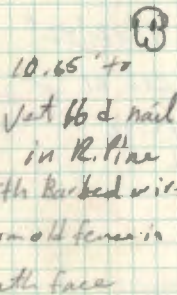 10.65' to
Vert 66d nail
in R. Pine
th Barbed wir
om old fence in
th face